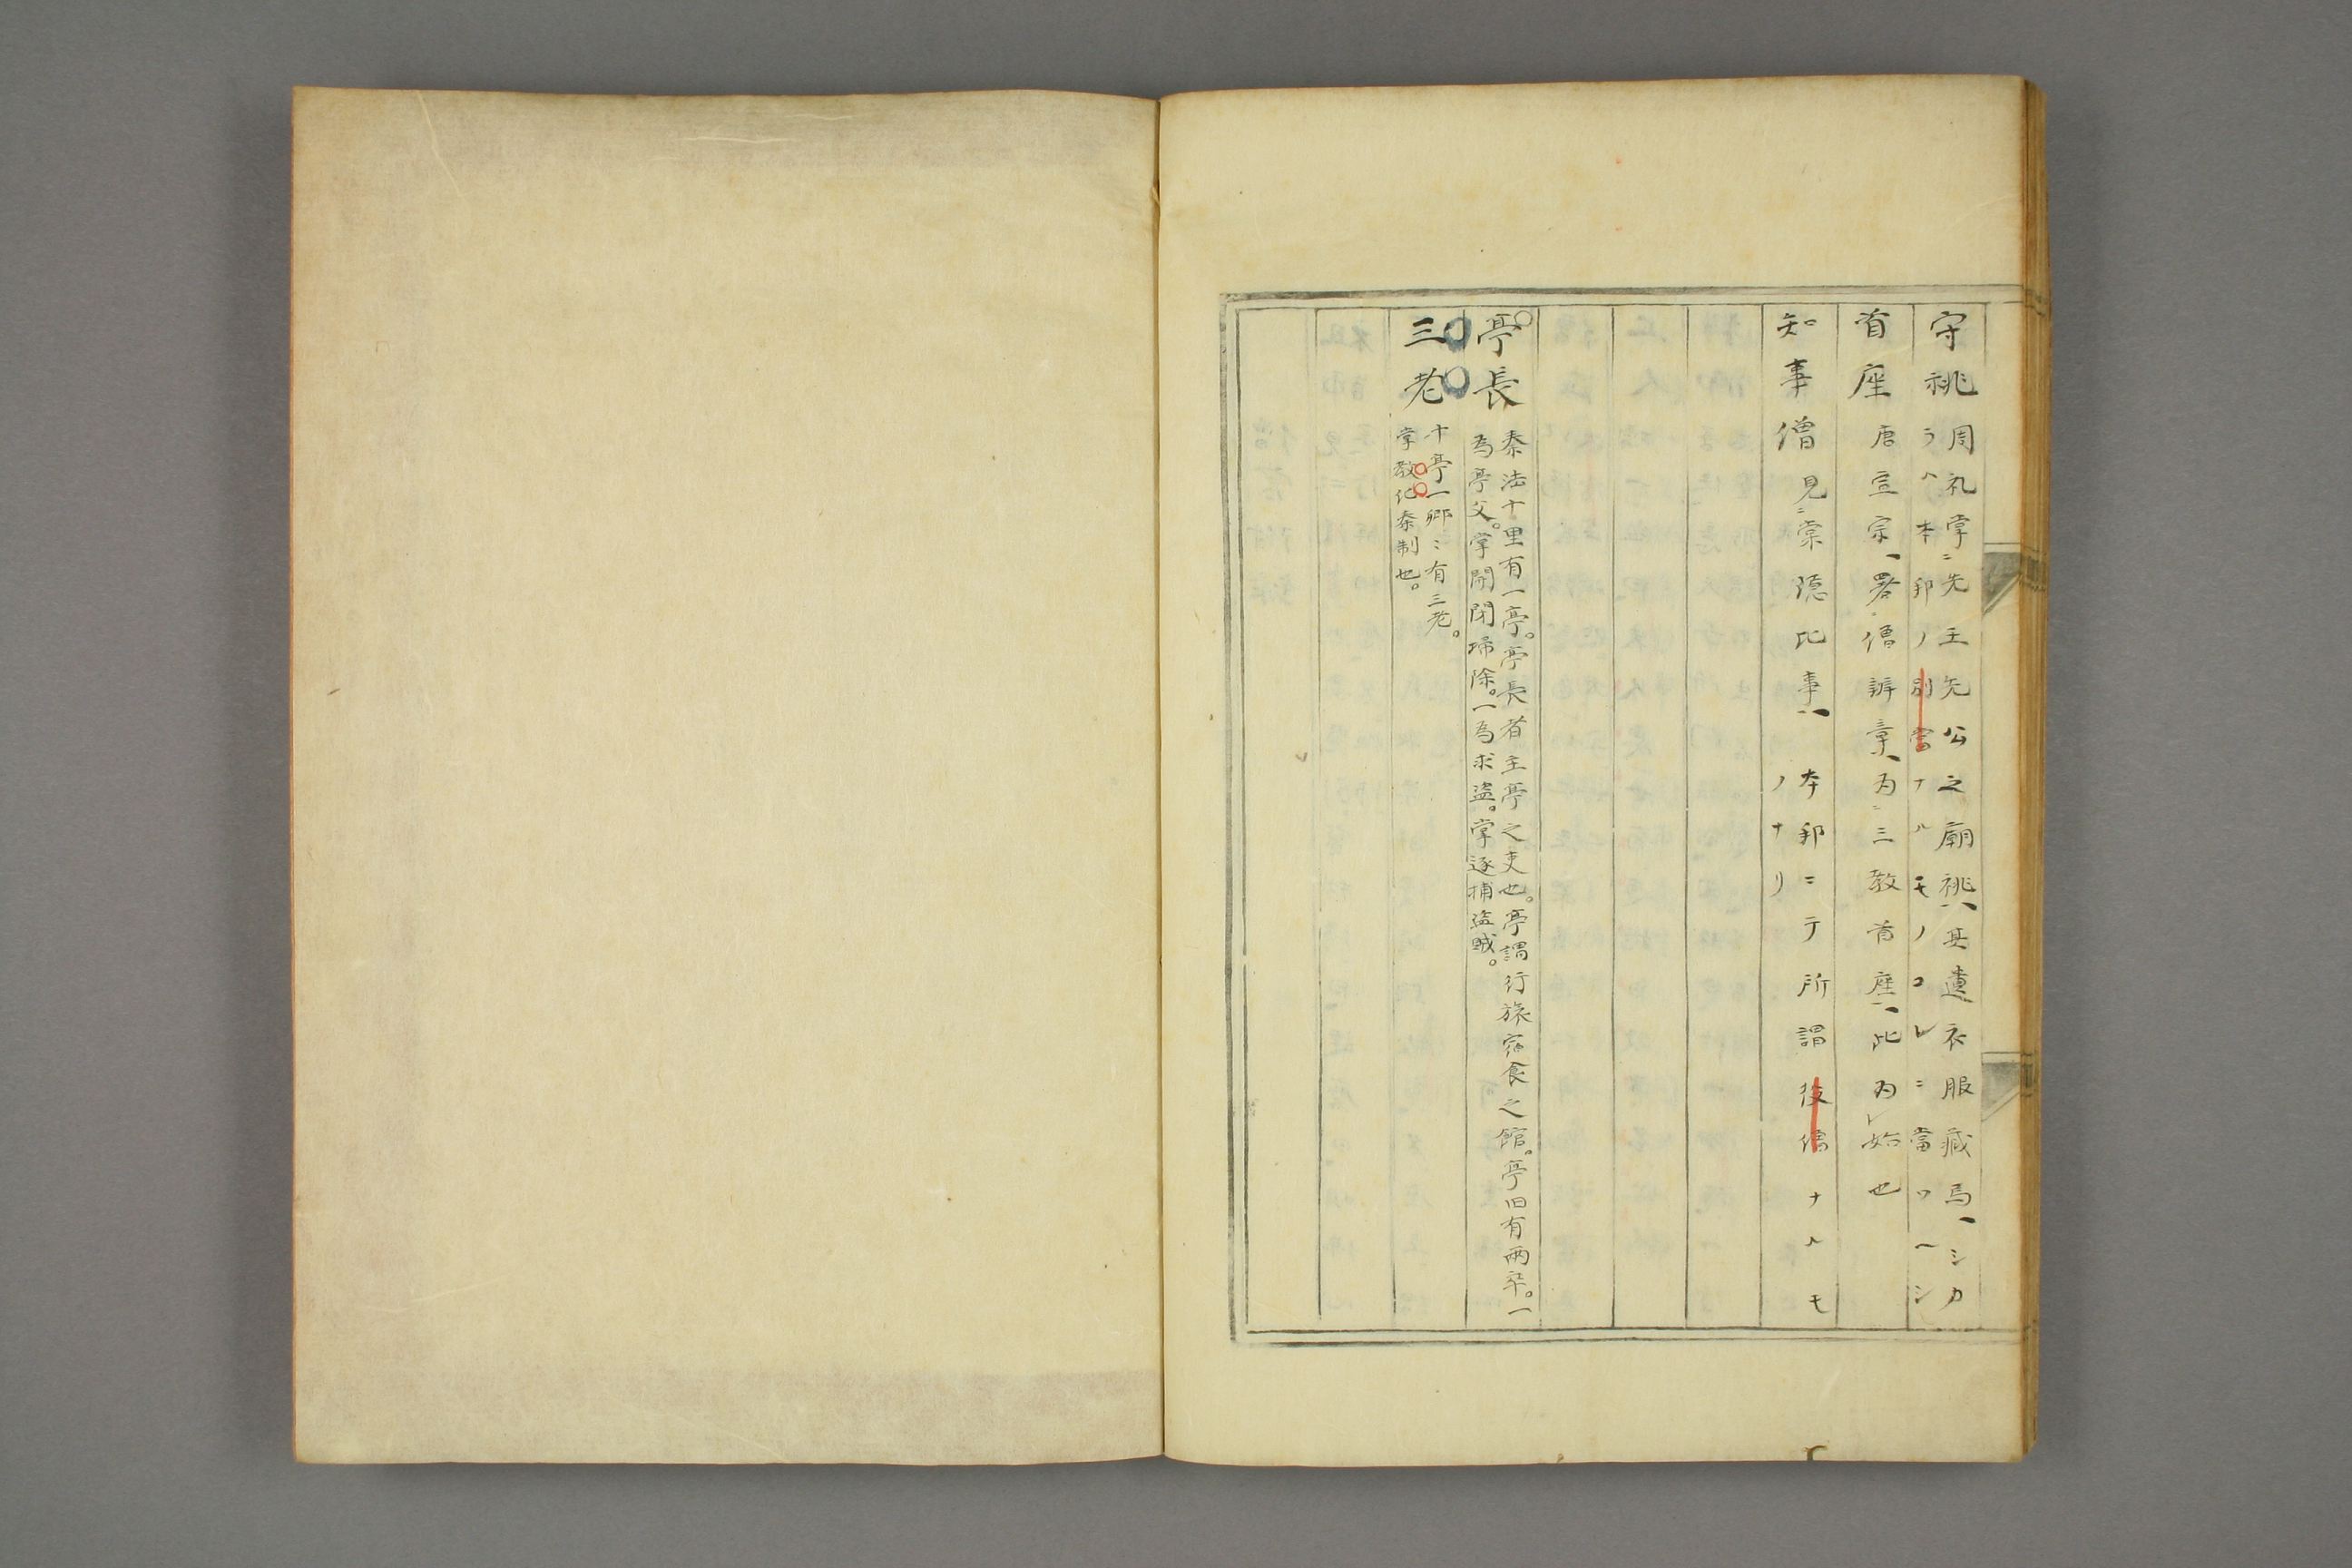 守祧
周礼掌ニ先王先公之廟祧一、其遺衣服藏焉一、シカ
ラハ本邦ノ別當ナルモノコレニ當ツヘシ
首座
唐宣宗一署僧辨章一為ニ三教首座一、此為レ始也
知事僧
見ニ棠隠比事一
本邦ニテ所謂役僧ナルモ
ノナリ
亭長
秦法十里有一亭。亭長者主亭之吏也。亭謂行旅宿食之館。亭旧有兩卒。一
為亭父。掌開閉埽除。一為求盜。掌逐捕盜賊。
三老
十亭一鄉〻有三老。
掌教化秦制也。